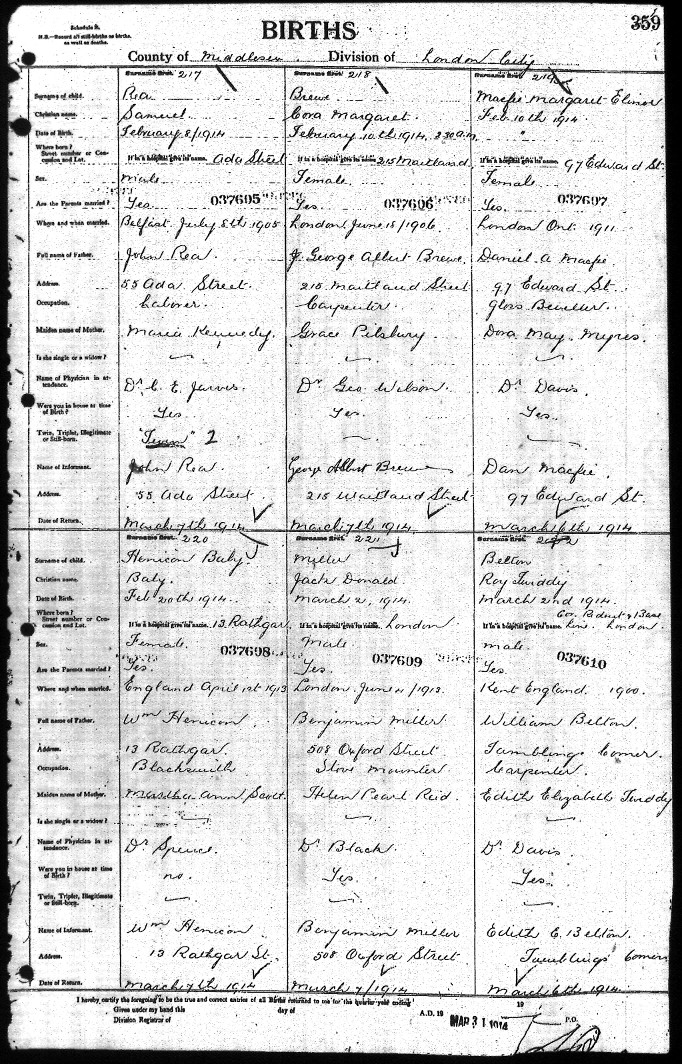 Schedule B.
N.B.—Record all still-births as births.
as well as deaths.
BIRTHS
359
County of Middlesex Division of London City
217 218 219
Surname of child. Rea Brewe Macfie Margaret Elinor
Christian name. Samuel Cora Margaret. Feb 10th 1914
Date of Birth. February 8/1914 February 10th 1914, 2 30 a.m. "
Where born?
Street number or Con-
cession and Lot. If in a hospital give its name. Ada Street If in a hospital give its name. 215 Maitland If in a hospital give its name. 97 Edward St.
Sex. male Female Female
037605 037606 037607
Are the Parents married? Yes Yes. Yes.
Where and when married. Belfast July 8th 1905 London June 15/1906. London Ont. 1911
Full name of Father. John Rea J. George Albert Brewe. Daniel A Macfie
Address. 55 Ada Street 215 Maitland Street 97 Edward St
Occupation. Labourer. Carpenter. Gloss
Maiden name of Mother. Maria Kennedy. Grace Pilsbury Dora May Myres.
Is she single or a widow?
Name of Physician in at-
tendence. Dr C. E. Jarvis. Dr Geo Wilson. Dr Davis.
Were you in house at time
of Birth? Yes. Yes. Yes.
Twin, Triplet, Illegitimate
or Still-born. "Twin" 2
Name of Informant. John Rea. George Albert Brewe Dan Macfie.
Address. 55 Ada Street. 215 Maitland Street 97 Edward St.
Date of Return. March 7th 1914 March 7th 1914. March 16th 1914
220 221 222
Surname of child. Henicon Baby Miller Belton
Christian name. Baby. Jack Donald Roy Tuddy
Date of Birth. Feb 20th 1914. March 2, 1914. March 2nd 1914.
Where born?
Street number or Con-
cession and Lot. If in a hospital give its name. 13 Rathgar If in a hospital give its name. London If in a hospital give its name. Cor. & Base Line. London.
Sex. Female Male male
037608 037609 037610
Are the Parents married? Yes. Yes. Yes.
Where and when married. England April 1st 1913 London June 4/1913. Kent England. 1900.
Full name of Father. Wm Henicon Benjamin Miller William Belton.
Address. 13 Rathgar. 508 Oxford Street Tamblings Corner.
Occupation. Blacksmith Stove Mounter Carpenter.
Maiden name of Mother. Martha Ann Scott. Helen Pearl Reid. Edith Elizabeth Tuddy
Is she single or a widow?
Name of Physician in at-
tendence. Dr Spence. Dr Black Dr Davis.
Were you in house at time
of Birth? no. Yes. Yes.
Twin, Triplet, Illegitimate
or Still-born.
Name of Informant. Wm Henicon Benjamin Miller Edith E. Belton.
Address. 13 Rathgar St. 508 Oxford Street Tamblings Corners
Date of Return. March 7th 1914 March 7/1914 March 6th 1914.
I hereby certify the foregoing to be the true and correct entries of all Births returned to me for the quarter year ending 19
Given under my hand this day of A.D. 19
MAR 31 1914
Division Registrar of P.O.